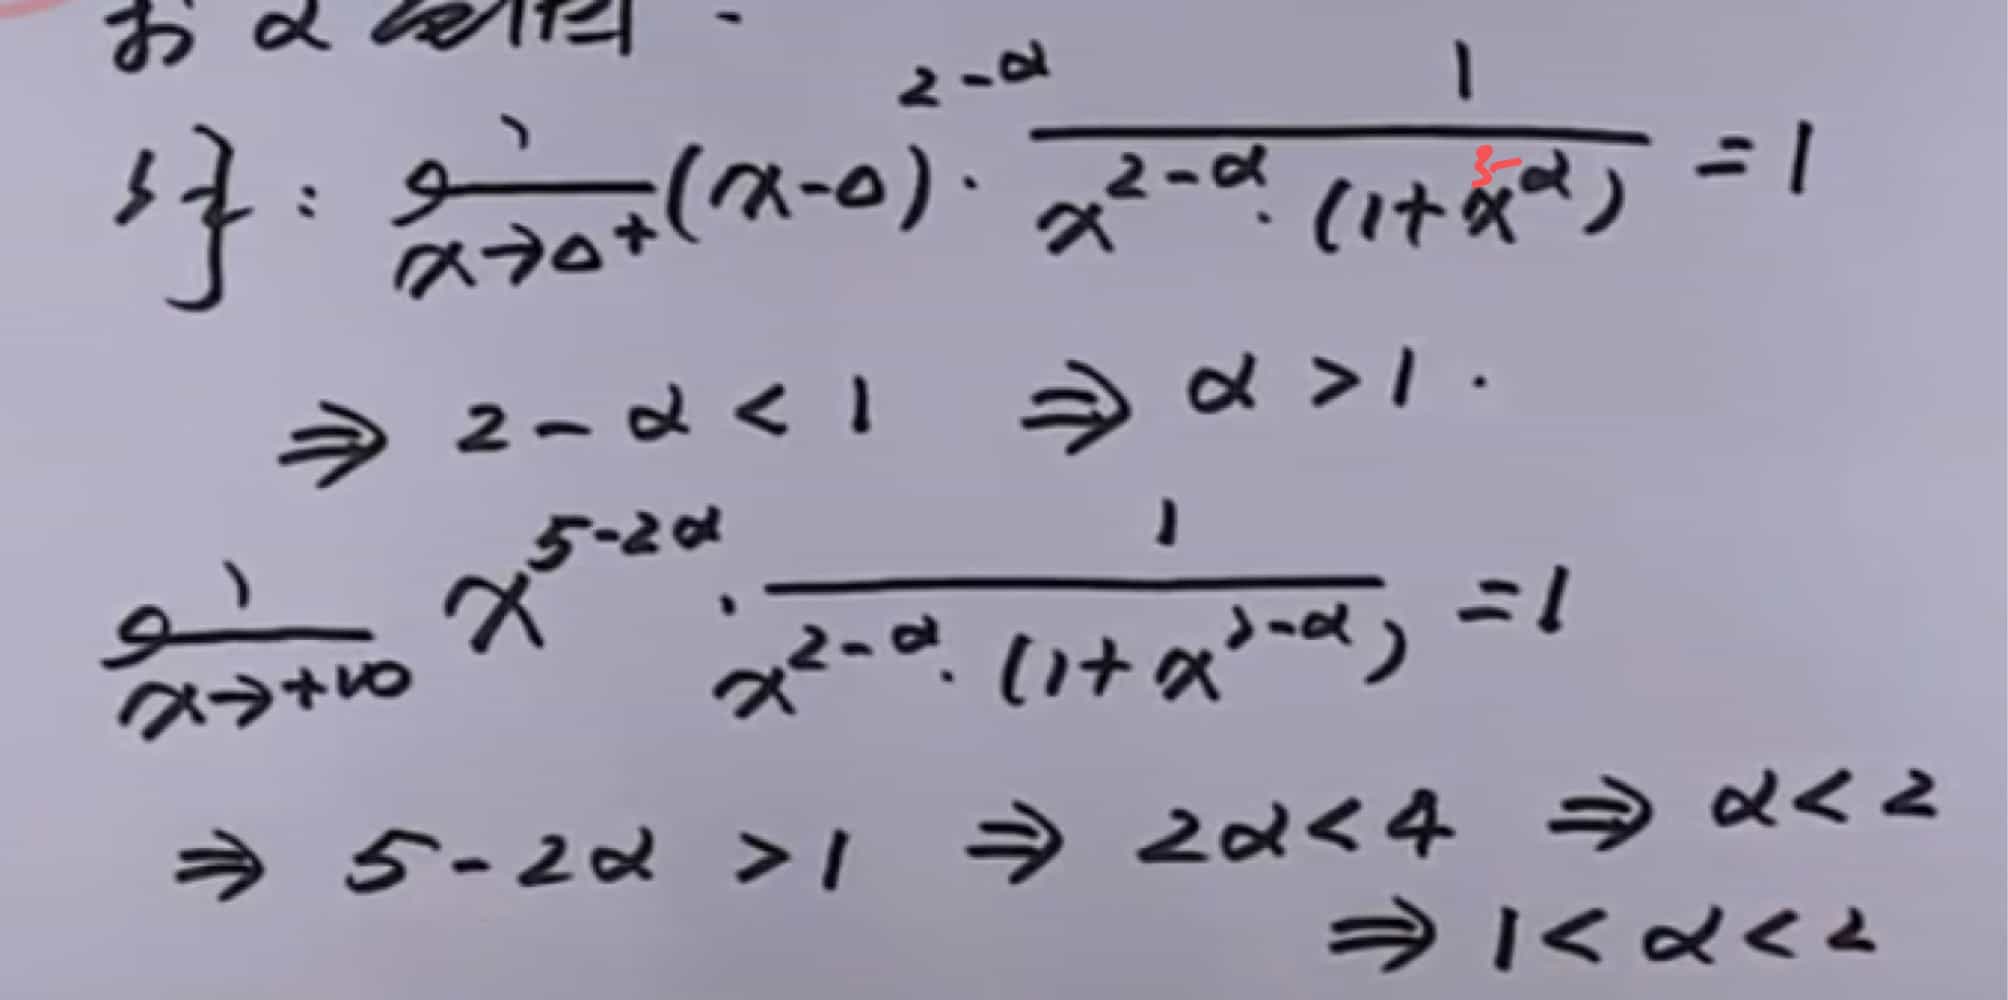 求 α
解: lim x→0+ (x-0)^{2-α} · 1/(x^{2-α} · (1+x^{3-α})) = 1
⇒ 2-α < 1 ⇒ α > 1.
lim x→+∞ x^{5-2α} · 1/(x^{2-α} · (1+x^{3-α})) = 1
⇒ 5-2α > 1 ⇒ 2α < 4 ⇒ α < 2
⇒ 1 < α < 2